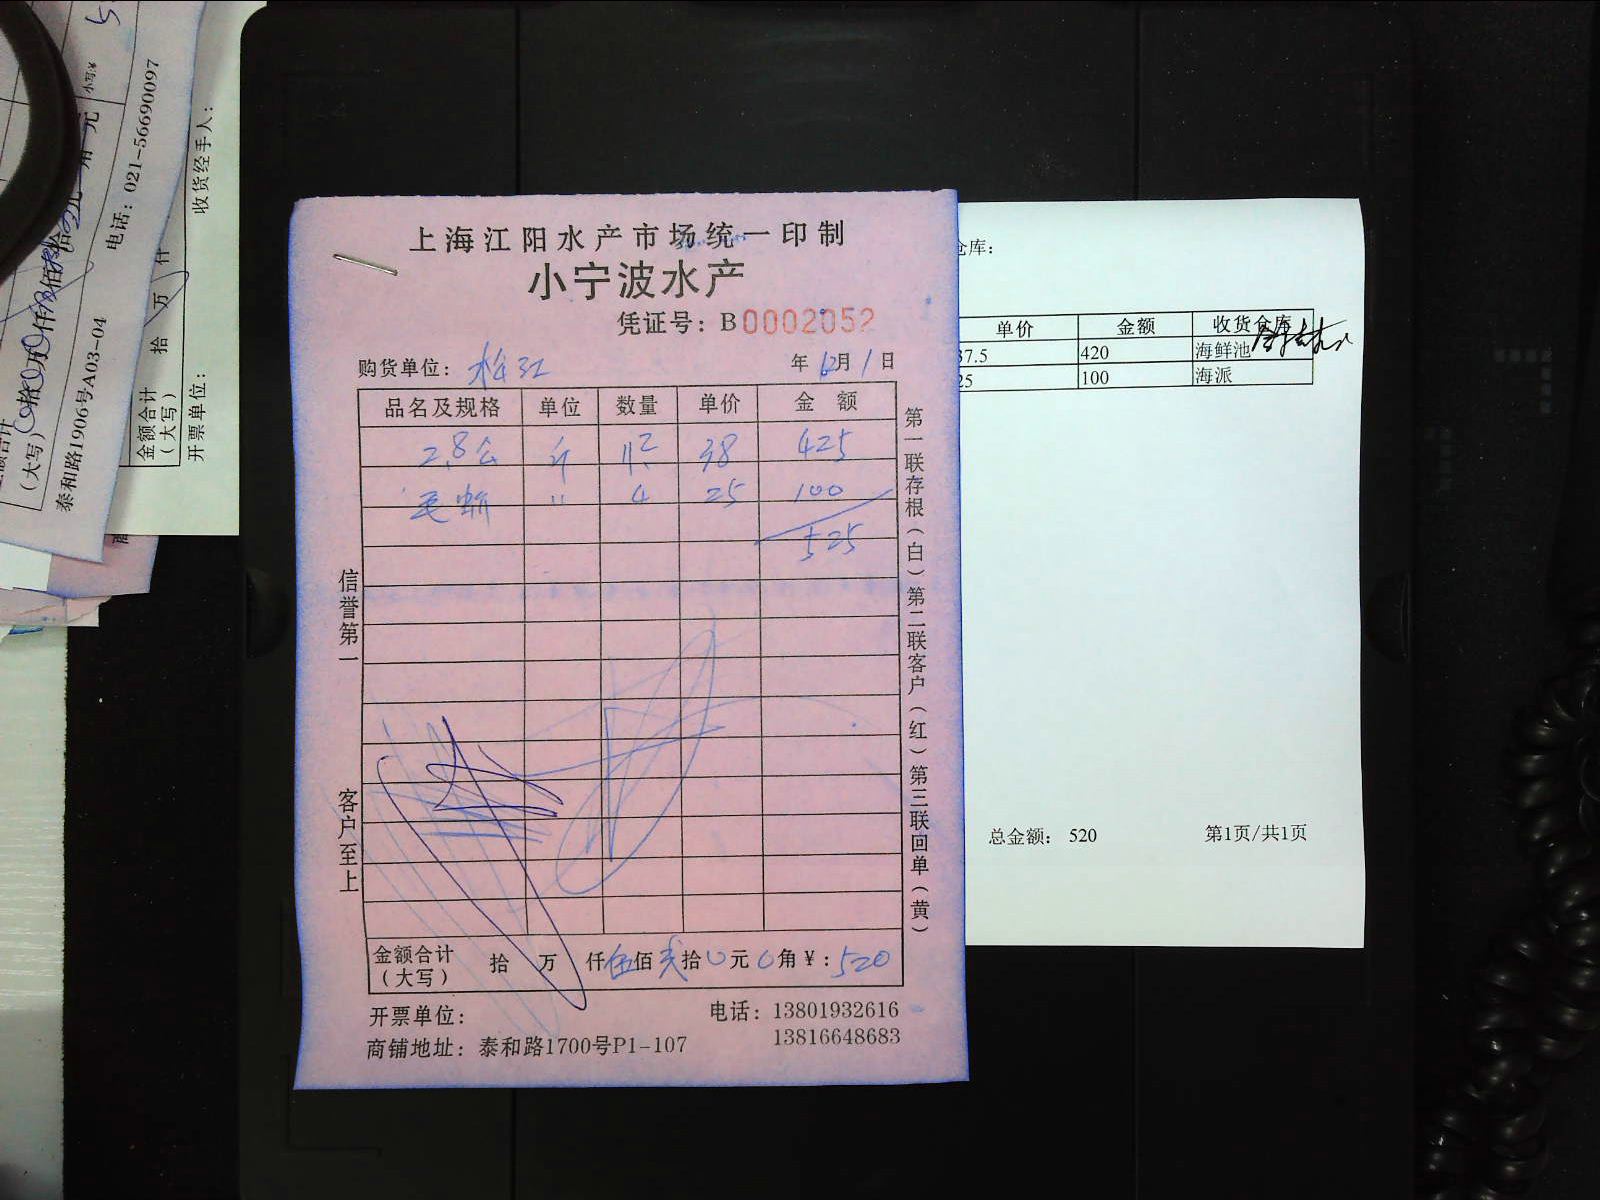 上海江阳水产市场统一印制
小宁波水产
凭证号：B0002052
购货单位：松江 年12月1日
品名及规格 单位 数量 单价 金额
2.8公 斤 11.2 38 425
毛蚶 〃 4 25 100
525
信誉第一
客户至上
第一联存根（白）第二联客户（红）第三联回单（黄）
金额合计（大写） 拾 万 仟伍佰贰拾0元0角￥：520
开票单位： 电话：13801932616
13816648683
商铺地址：泰和路1700号P1-107
仓库：
单价 金额 收货仓库
37.5 420 海鲜池
25 100 海派
总金额： 520 第1页/共1页
小写:¥
电话：021-56690097
泰和路1906号A03-04
（大写）
收货经手人：
金额合计（大写） 拾 万 仟
开票单位：